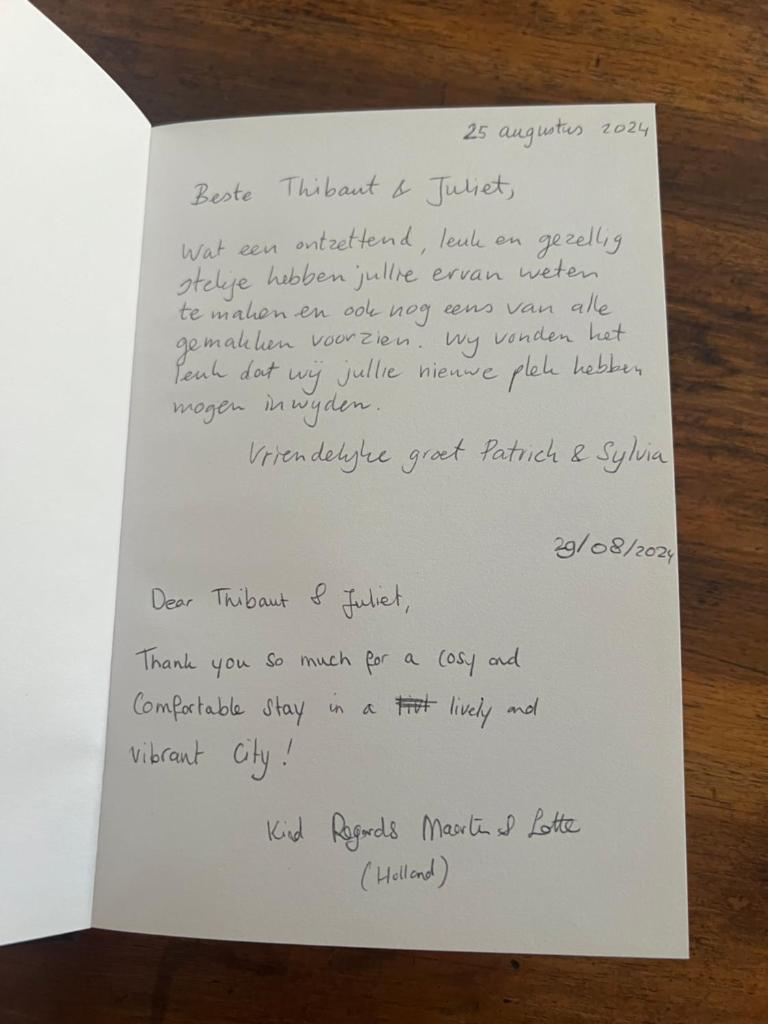 25 augustus 2024
Beste Thibaut & Juliet,
Wat een ontzettend, leuk en gezellig
stekje hebben jullie ervan weten
te maken en ook nog eens van alle
gemakken voorzien. Wy vonden het
leuk dat wij jullie nieuwe plek hebben
mogen inwyden.
Vriendelyke groet Patrick & Sylvia
29/08/2024
Dear Thibaut & Juliet,
Thank you so much for a cosy and
Comfortable stay in a lively and
vibrant City!
Kind Regards Maarten & Lotte
(Holland)